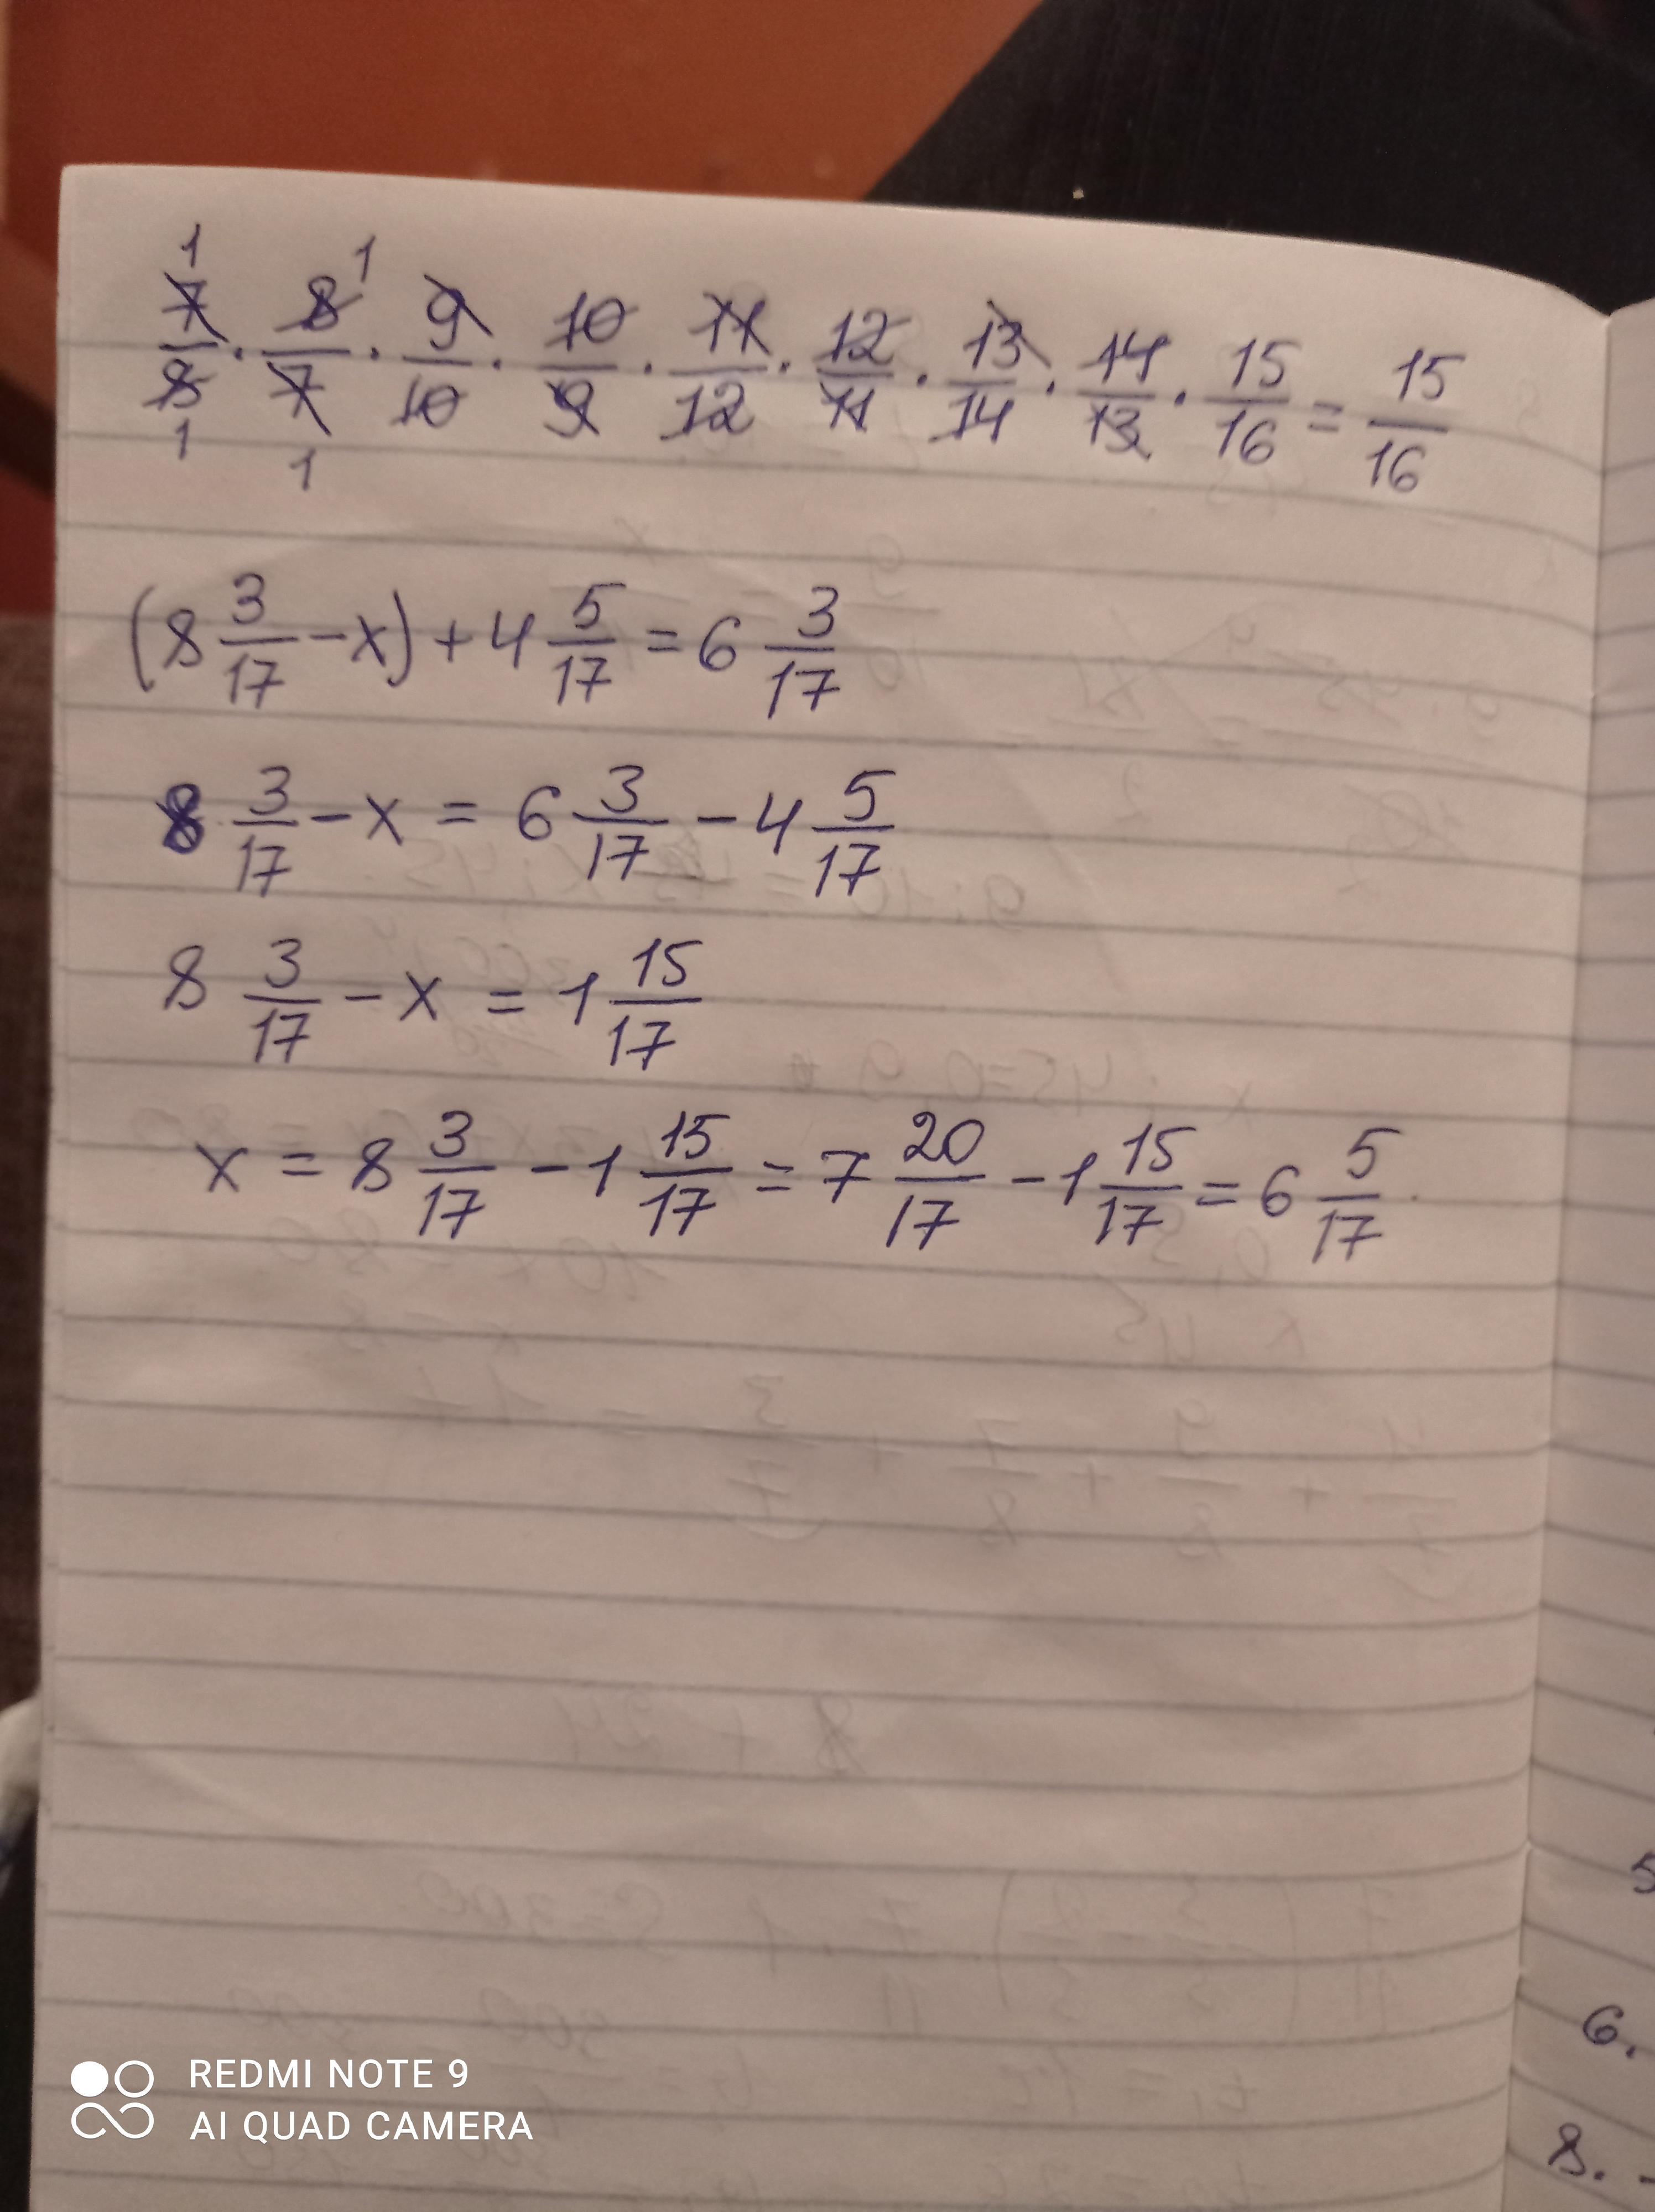 7/8 · 8/7 · 9/10 · 10/9 · 11/12 · 12/11 · 13/14 · 14/13 · 15/16 = 15/16
1 1
1 1
(8 3/17 - x) + 4 5/17 = 6 3/17
8 3/17 - x = 6 3/17 - 4 5/17
8 3/17 - x = 1 15/17
x = 8 3/17 - 1 15/17 = 7 20/17 - 1 15/17 = 6 5/17
5
6.
8. -
REDMI NOTE 9
AI QUAD CAMERA